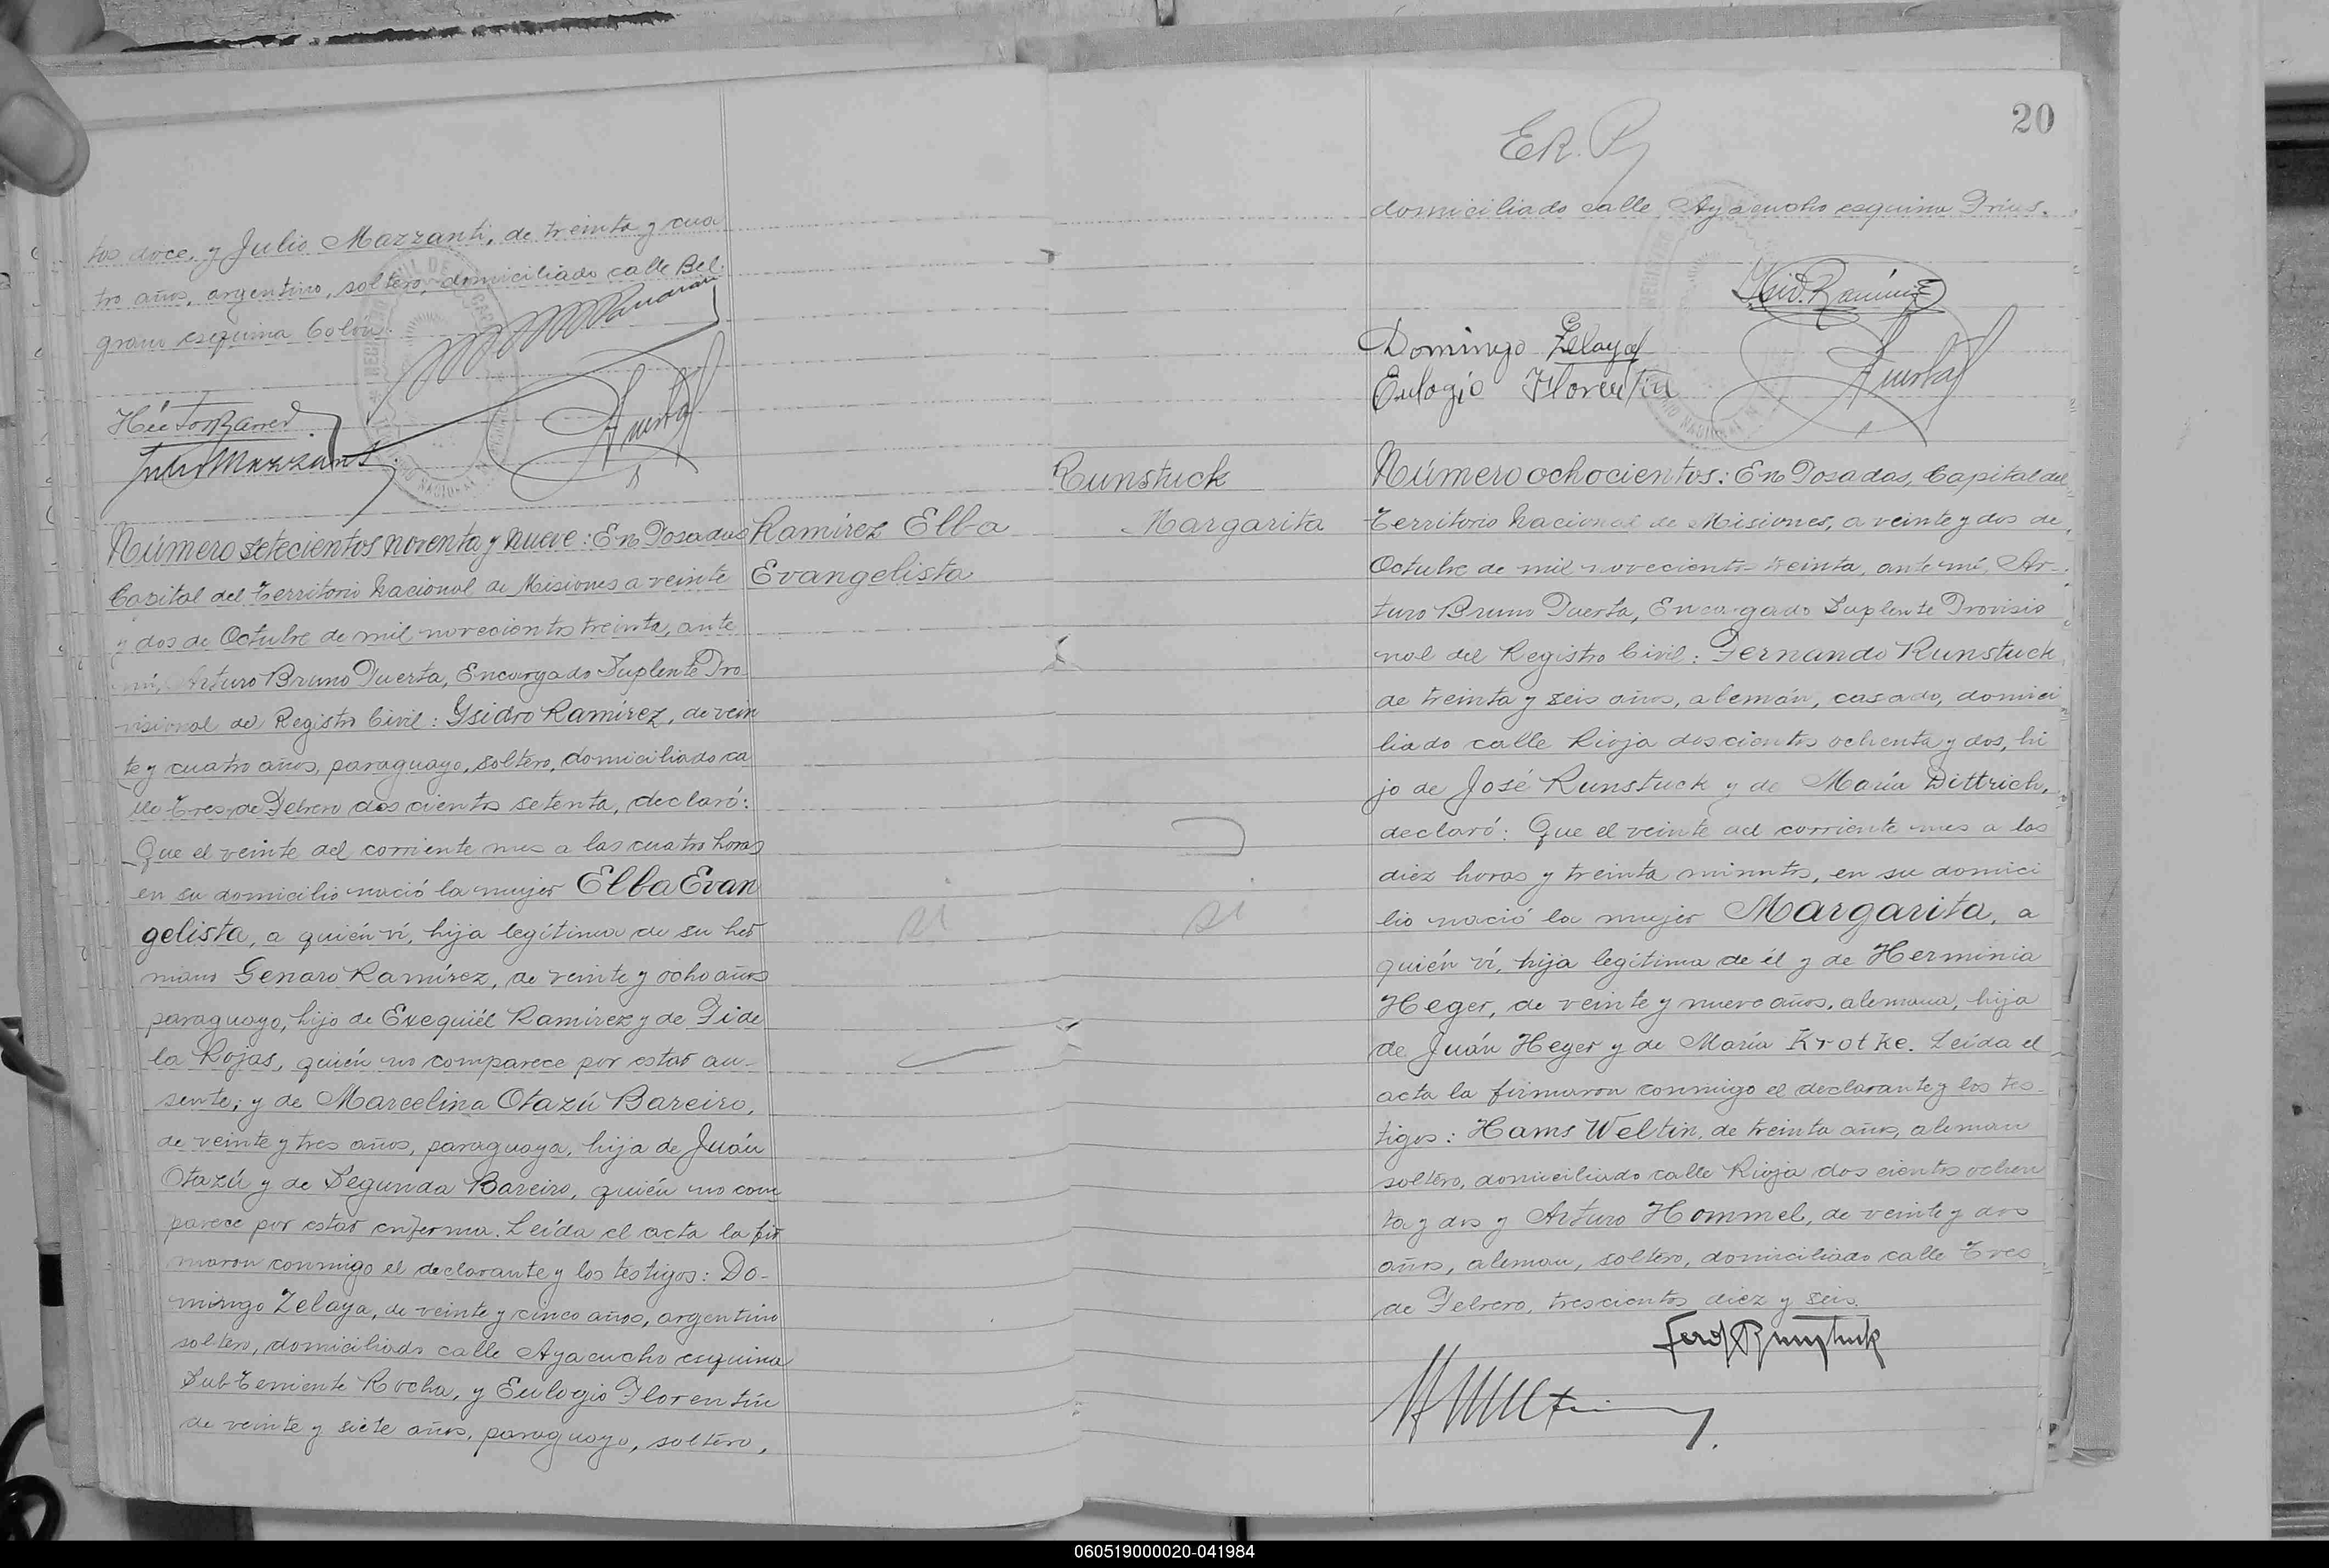 tos doce, y Julio Mazzanti, de treinta y cua
tro años, argentino, soltero, domiciliado calle Bel
grano esquina Colón.
Julio Mazzanti
Número setecientos noventa y nueve: En Posadas
Capital del Territorio Nacional de Misiones a veinte
y dos de Octubre de mil novecientos treinta, ante
mí, Arturo Bruno Puerta, Encargado Suplente Pro-
visional del Registro Civil: Ysidro Ramírez, de vein
te y cuatro años, paraguayo, soltero, domiciliado ca
lle Tres de Febrero doscientos setenta, declaró:
Que el veinte del corriente mes a las cuatro horas
en su domicilio nació la mujer Elba Evan
gelista, a quién ví, hija legítima de su her
mano Genaro Ramírez, de veinte y ocho años
paraguayo, hijo de Exequiél Ramírez y de Fide
la Rojas, quién no comparece por estar au-
sente; y de Marcelina Otazú Bareiro,
de veinte y tres años, paraguaya, hija de Juán
Otazú y de Segunda Bareiro, quién no com
parece por estar enferma. Leída el acta la fir
maron conmigo el declarante y los testigos: Do-
mingo Zelaya, de veinte y cinco años, argentino
soltero, domiciliado calle Ayacucho esquina
Sub-Teniente Rocha, y Eulogio Florentín
de veinte y siete años, paraguayo, soltero,
Ramírez Elba
Evangelista
si
20
E.R. P
domiciliado calle Ayacucho esquina Frius.
Ysid. Ramírez
Domingo Zelaya
Eulogio Florentín
Puerta
Runstuck
Margarita
si
Número ochocientos: En Posadas, Capital del
Territorio Nacional de Misiones, a veinte y dos de
Octubre de mil novecientos treinta, ante mí, Ar-
turo Bruno Puerta, Encargado Suplente Provisio
nal del Registro Civil: Fernando Runstuck
de treinta y seis años, alemán, casado, domici
liado calle Rioja doscientos ochenta y dos, hi
jo de José Runstuck y de María Dittrich,
declaró: Que el veinte del corriente mes a las
diez horas y treinta minutos, en su domici
lio nació la mujer Margarita, a
quién ví, hija legítima de él y de Herminia
Heger, de veinte y nueve años, alemana, hija
de Juán Heger y de María Krotke. Leída el
acta la firmaron conmigo el declarante y los tes-
tigos: Hams Weltin, de treinta años, aleman
soltero, domiciliado calle Rioja doscientos ochen
ta y dos y Arturo Hommel, de veinte y dos
años, aleman, soltero, domiciliado calle Tres
de Febrero, trescientos diez y seis.
Ferd Runstuck
060519000020-041984